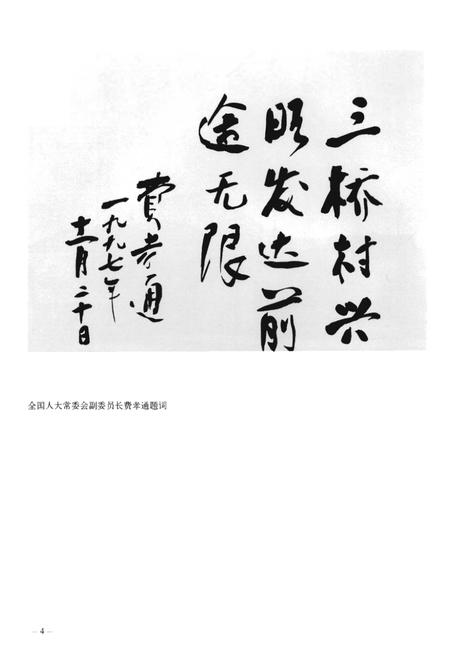 三桥村兴
旺发达前
途无限
费孝通
一九九七年
十一月二十日
全国人大常委会副委员长费孝通题词
— 4 —